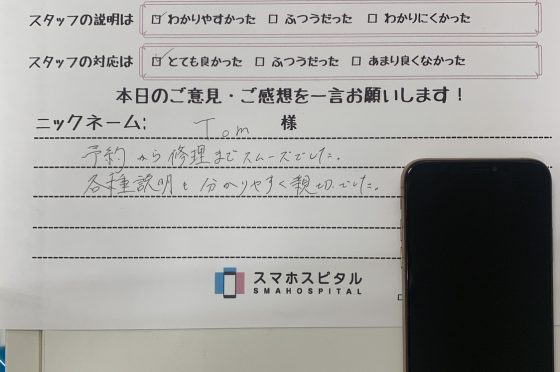 スタッフの説明は ☑ わかりやすかった ☐ ふつうだった ☐ わかりにくかった
スタッフの対応は ☑ とても良かった ☐ ふつうだった ☐ あまり良くなかった
本日のご意見・ご感想を一言お願いします！
ニックネーム: Tom 様
予約から修理までスムーズでした.
各種説明も分かりやすく親切でした.
スマホスピタル
SMAHOSPITAL